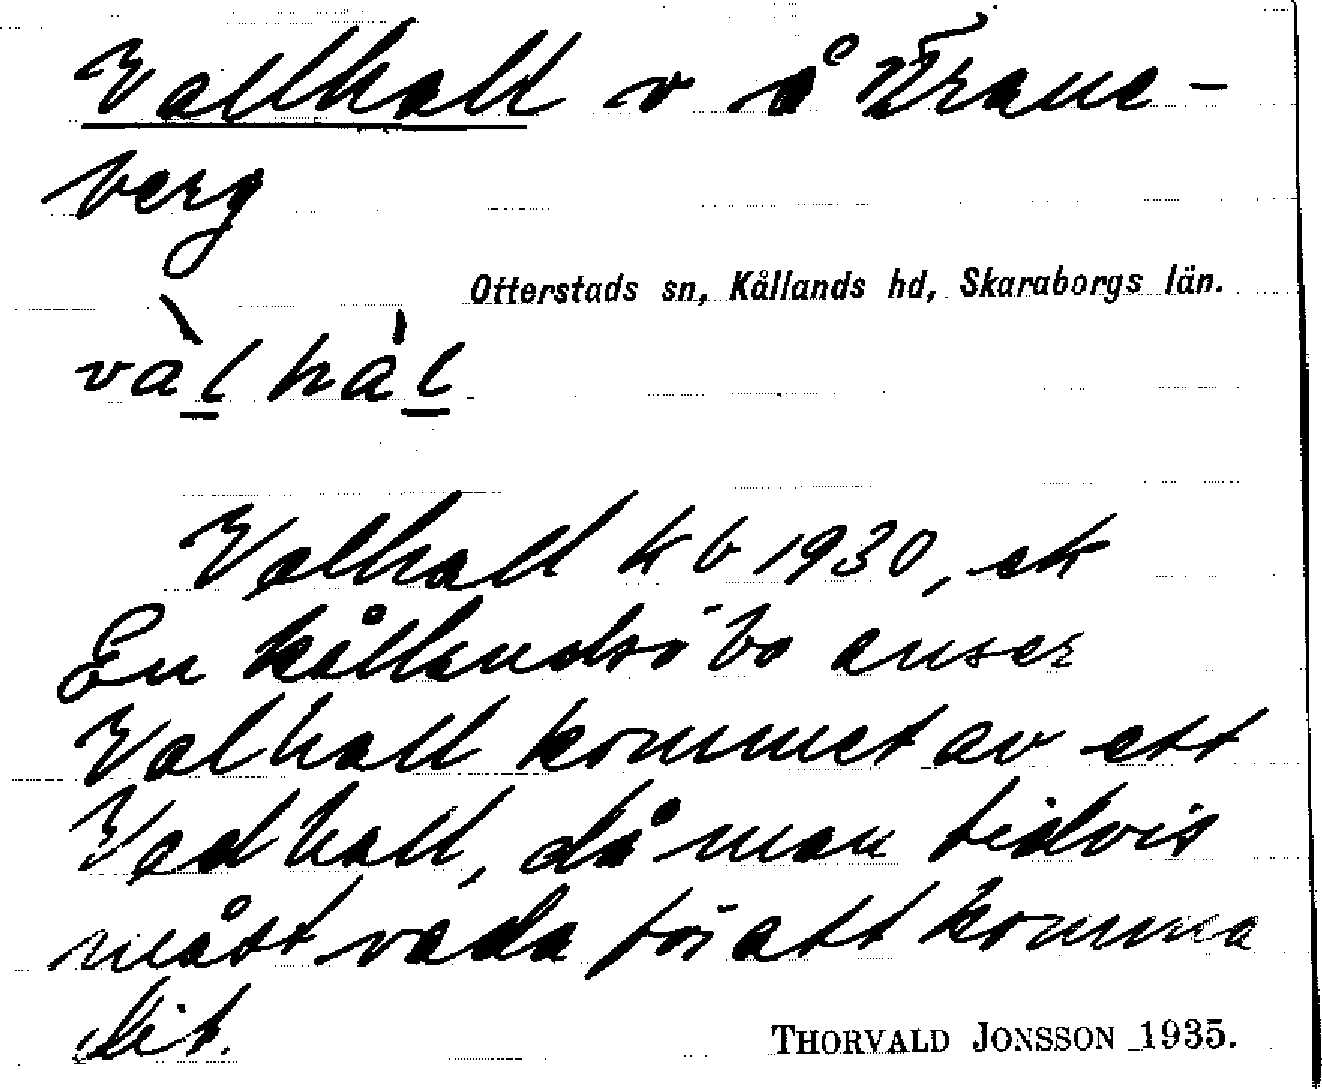 Vallhall v å Trane-
berg
Otterstads sn, Kållands hd, Skaraborgs län.
vàl hàl
Valhall kb 1930, ek
En kållandsöbo anser
Valhall kommet av ett
Vadhall, då man tidvis
måst vada för att komma
dit.
THORVALD JONSSON 1935.